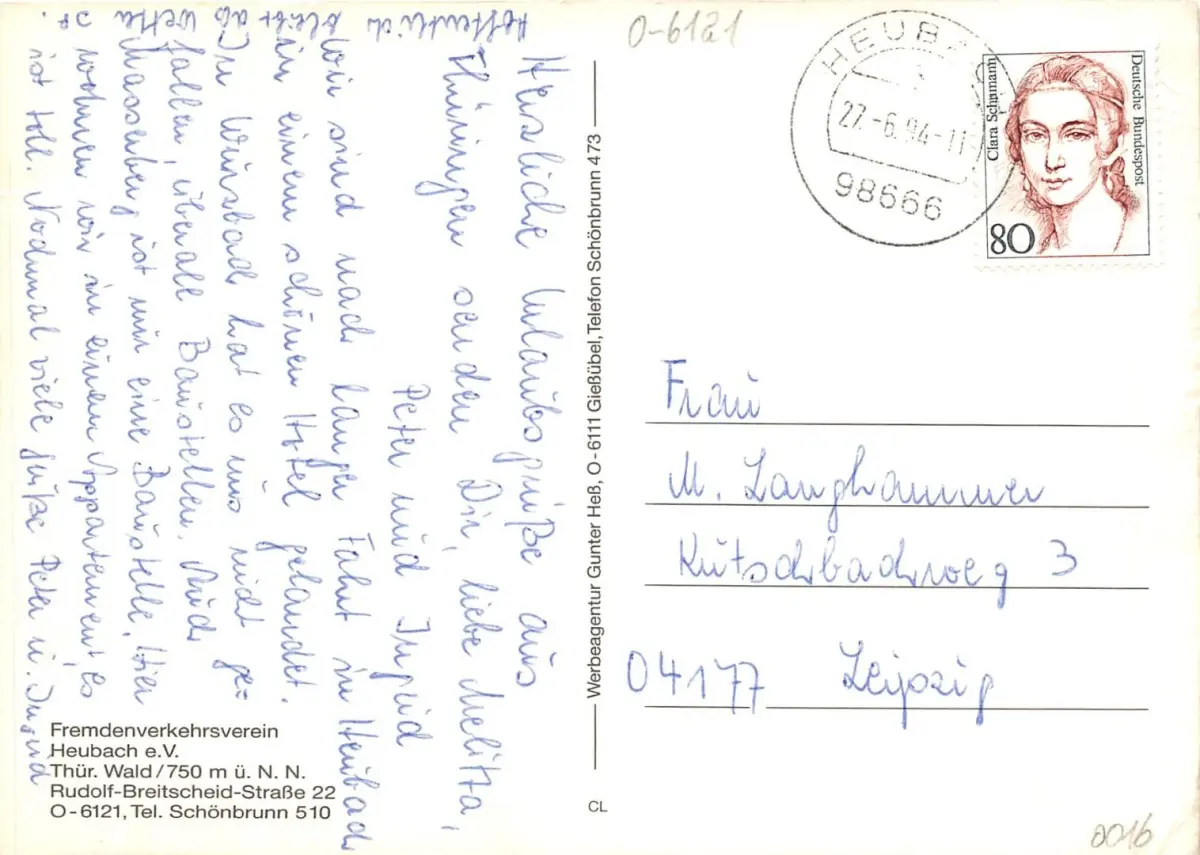 Herzliche Urlaubsgrüße aus
Thüringen senden Dir, liebe Melitta,
Peter und Ingrid
Wir sind nach langer Fahrt in Heubach
in einem schönen Hotel gelandet.
In Wursbach hat es uns nicht ge-
fallen, überall Baustellen. Auch
Masserberg ist nur eine Baustelle. Hier
wohnen wir in einem Appartement, es
ist toll. Nochmal viele Grüße Peter u. Ingrid
Hoffentlich bleibt das Wetter
Fremdenverkehrsverein
Heubach e.V.
Thür. Wald/750 m ü. N. N.
Rudolf-Breitscheid-Straße 22
O-6121, Tel. Schönbrunn 510
Werbeagentur Gunter Heß, O-6111 Gießübel, Telefon Schönbrunn 473
CL
O-6121
HEUBACH
27.-6.94-11
98666
Clara Schumann
Deutsche Bundespost
80
Frau
M. Langhammer
Kutschbachweg 3
04177 Leipzig
0016